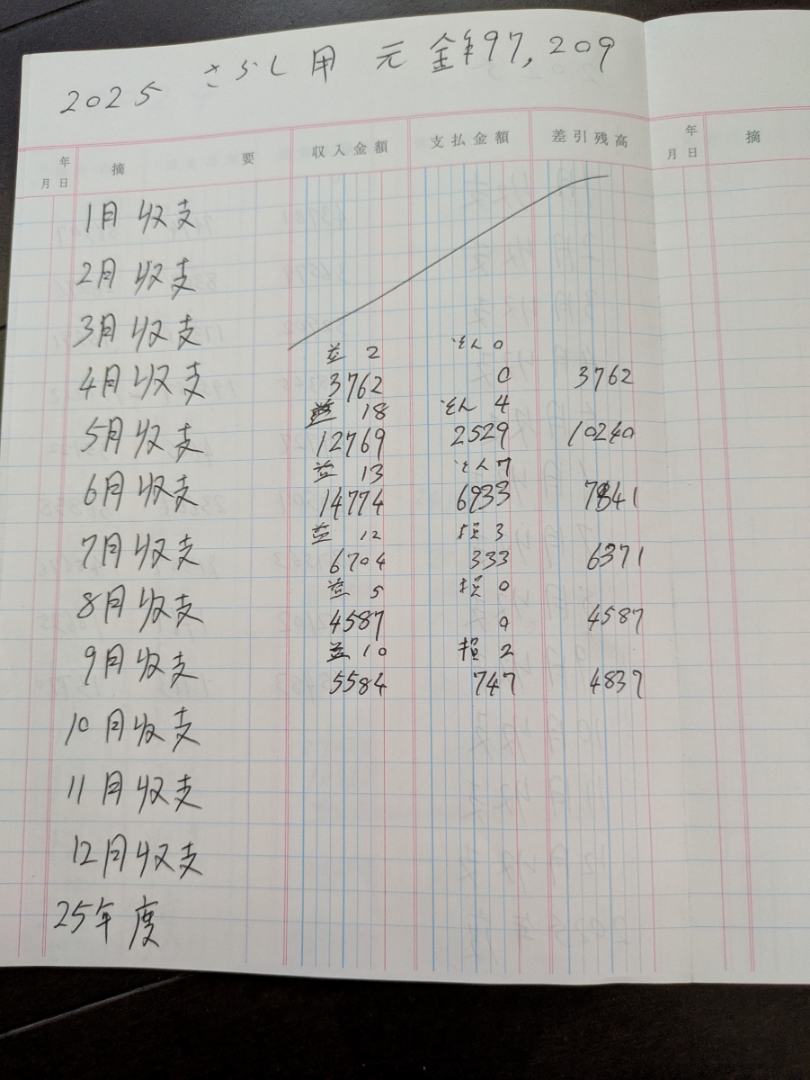 2025 さらし用 元金¥97,209
年 月 日 摘 要 収入金額 支払金額 差引残高 年 月 日 摘
1月収支
2月収支
3月収支
益 2 そん 0
4月収支 3762 0 3762
益 18 そん 4
5月収支 12769 2529 10240
益 13 そん 7
6月収支 14774 6933 7841
益 12 損 3
7月収支 6704 333 6371
益 5 損 0
8月収支 4587 0 4587
益 10 損 2
9月収支 5584 747 4837
10月収支
11月収支
12月収支
25年度